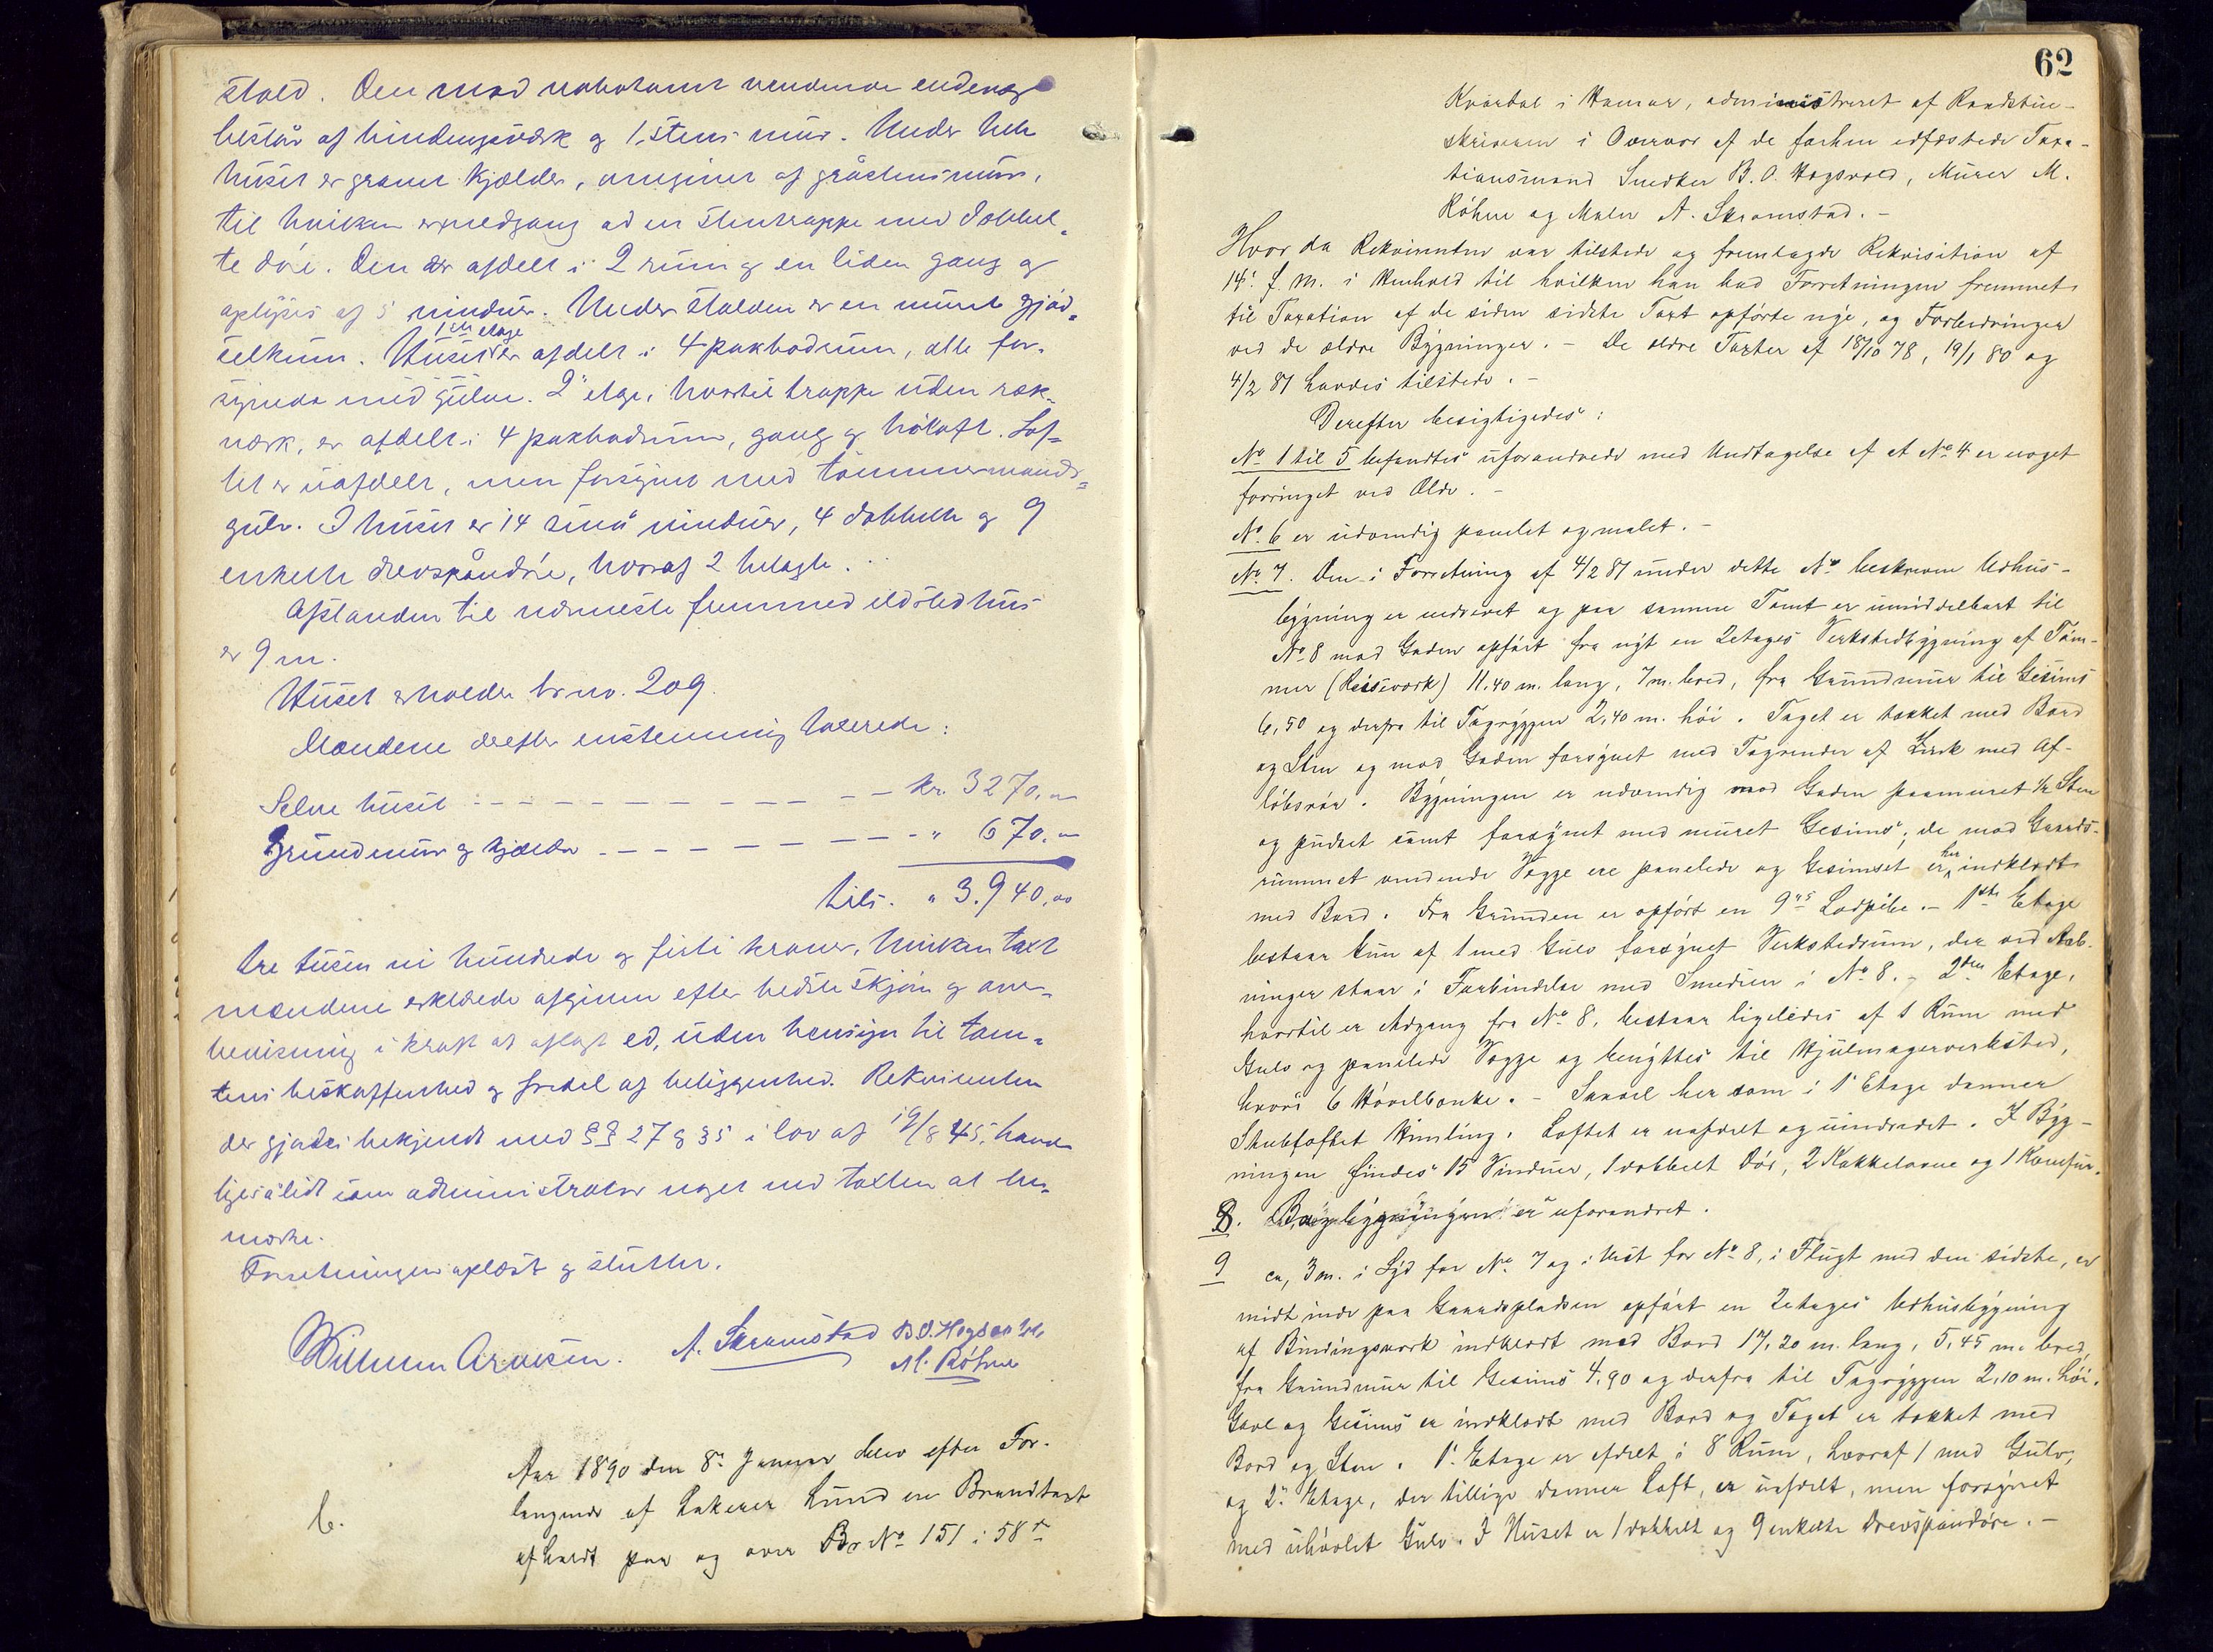 stald. Den mod nabotomt vendende endevæg
består af bindingsverk og 1. stens mur. Under hele
huset er gravet kjælder, omgivet af gråstensmur,
til hvilken er nedgang ad en stentrappe med dobbel-
te døre. Den er afdelt i 2 rum og en liden gang og
oplyses af 5 vinduer. Under stalden er en muret gjød-
selkum. Husets 1ste etage er afdelt i 4 pakbodrum, alle for-
synede med gulve. 2' etage, hvortil trappe uden ræk-
værk, er afdelt i 4 pakbodrum, gang og høloft. Lof-
tet er uafdelt, men forsynet med tømmermands-
gulv. I huset er 14 små vinduer, 4 dobbelte og 9
enkelte drevspåndøre, hvoraf 2 belagte.
Afstanden til nærmeste fremmed ildsted hus
er 9 m.
Huset erholder br no. 209.
Mændene derefter enstemmig taxerede:
Selve huset - - - - - - - - - - - kr. 3270,00
Grundmur og kjælder - - - - - - - - - " 670.00
tils. " 3.940,00
tre tusen ni hundrede og firti kroner, hvilken taxt
mændene erklærede afgiven efter bedste skjøn og over-
bevisning i kraft af aflagt ed, uden hensyn til tom-
tens beskaffenhed og fordel af beliggenhed. Rekvirenten
der gjordes bekjendt med §§ 27 og 35 i lov af 19/8 45, havde
ligesålidt som administrator noget ved taxten at be-
mærke.
Forretningen oplæst og sluttet.
Wilhelm Arnesen. A. Skramstad B.O. Hogsvold
M. Röhne
Aar 1890 den 8de Januar blev efter For-
6.
langende af Lakerer Lund en Brandtaxt
afholdt paa og over Br No 151 i 58de
62
Kvartal i Hamar, administreret af Raadstue-
skriveren i Overvær af de forhen edfæstede Taxa-
tionsmænd Snedker B. O. Hogsvold, Murer M.
Röhne og Maler A. Skramstad. -
Hvor da Rekvirenten var tilstede og fremlagde Rekvisition af
14' f. M. i Henhold til hvilken han bad Forretningen fremmet
til Taxation af de siden sidste Taxt opførte nye, og Forbedringer
ved de ældre Bygninger. - De ældre Taxter af 18/10 78, 19/1 80 og
4/2 81 havdes tilstede. -
Derefter besigtigedes:
No 1 til 5 befandtes uforandrede med Undtagelse af at No 4 er noget
forringet ved Ælde. -
No 6 er udvendig panelet og malet. -
No 7. Den i Forretning af 4/2 81 under dette No beskrevne Udhus-
bygning er nedrevet og paa samme Tomt er umiddelbart til
No 8 mod Gaden opført fra nyt en 2etages Verkstedbygning af Tøm-
mer (Reisverk) 11.40 m. lang, 7 m. bred, fra Grundmur til Gesims
6,50 og derfra til Tagryggen 2,40 m. høi. Taget er tækket med Bord
og Sten og mod Gaden forsynet med Tagrender af Zink med Af-
løbsrør. Bygningen er udvendig mod Gaden paamuret 1/2 Sten
og pudset samt forsynet med muret Gesims; de mod Gaards-
rummet vendende Vægge ere panelede og Gesimset er her indklædt
med Bord. Fra Grunden er opført en 9" Lødpibe. - 1ste Etage
bestaar kun af 1 med Gulv forsynet Verkstedrum, der ved Aab-
ninger staar i Forbindelse med Smedien i No 8. - 2den Etage,
hvortil er Adgang fra No 8, bestaar ligeledes af 1 Rum med
Gulv og panelede Vægge og benyttes til Hjulmagerverksted,
hvori 6 Høvelbænke. - Saavel her som i 1' Etage danner
Stubloftet Himling. Loftet er uafdelt og uindredet. I Byg-
ningen findes 15 Vinduer, 1 dobbelt Dør, 2 Kakkelovne og 1 Komfur.
8. Bagbygningen er uforandret.
9 ca, 3 m. i Syd for No 7 og i Vest for No 8, i Flugt med den sidste, er
midt inde paa Gaardspladsen opført en 2etages Udhusbygning
af Bindingsverk indklædt med Bord 17,20 m. lang, 5,45 m. bred,
fra Grundmur til Gesims 4.90 og derfra til Tagryggen 2.10 m. høi.
Gavl og Gesims er indklædt med Bord og Taget er tækket med
Bord og Sten. 1' Etage er afdelt i 8 Rum, hvoraf 1 med Gulv,
og 2' Etage, der tillige danner Loft, er uafdelt, men forsynet
med uhøvlet Gulv. I Huset er 1 dobbelt og 9 enkelte Drevspaandøre. -